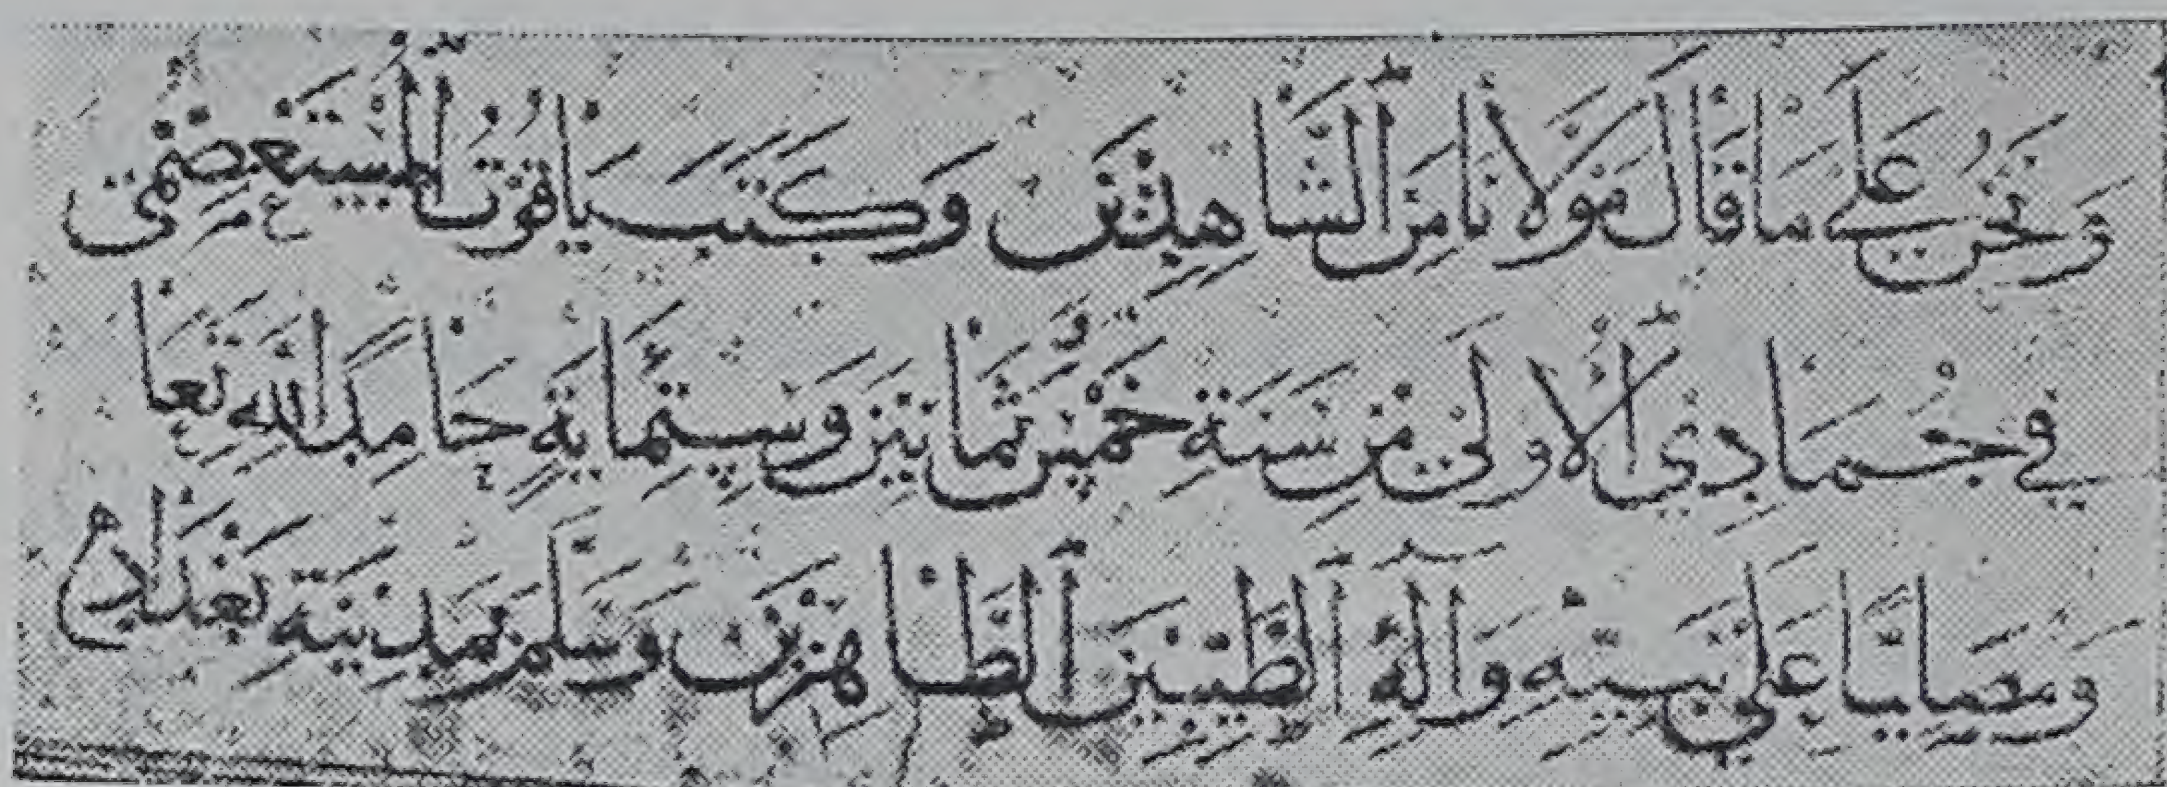 وَنَحْنُ عَلَى مَا قَالَ مَوْلَانَا مِنَ الشَّاهِدِينَ وَكَتَبَ يَاقُوتُ الْمُسْتَعْصِمِيّ
فِي جُمَادِي الْأُولَى مِنْ سَنَةِ خَمْسٍ وَثَمَانِينَ وَسِتِّمِايَةٍ حَامِدًا لِلَّهِ تَعَا
وَمُصَلِّيًا عَلَى نَبِيِّهِ وَآلِهِ الطَّيِّبِينَ الطَّاهِرِينَ وَسَلَّمَ بِمَدِينَةِ بَغْدَادَ